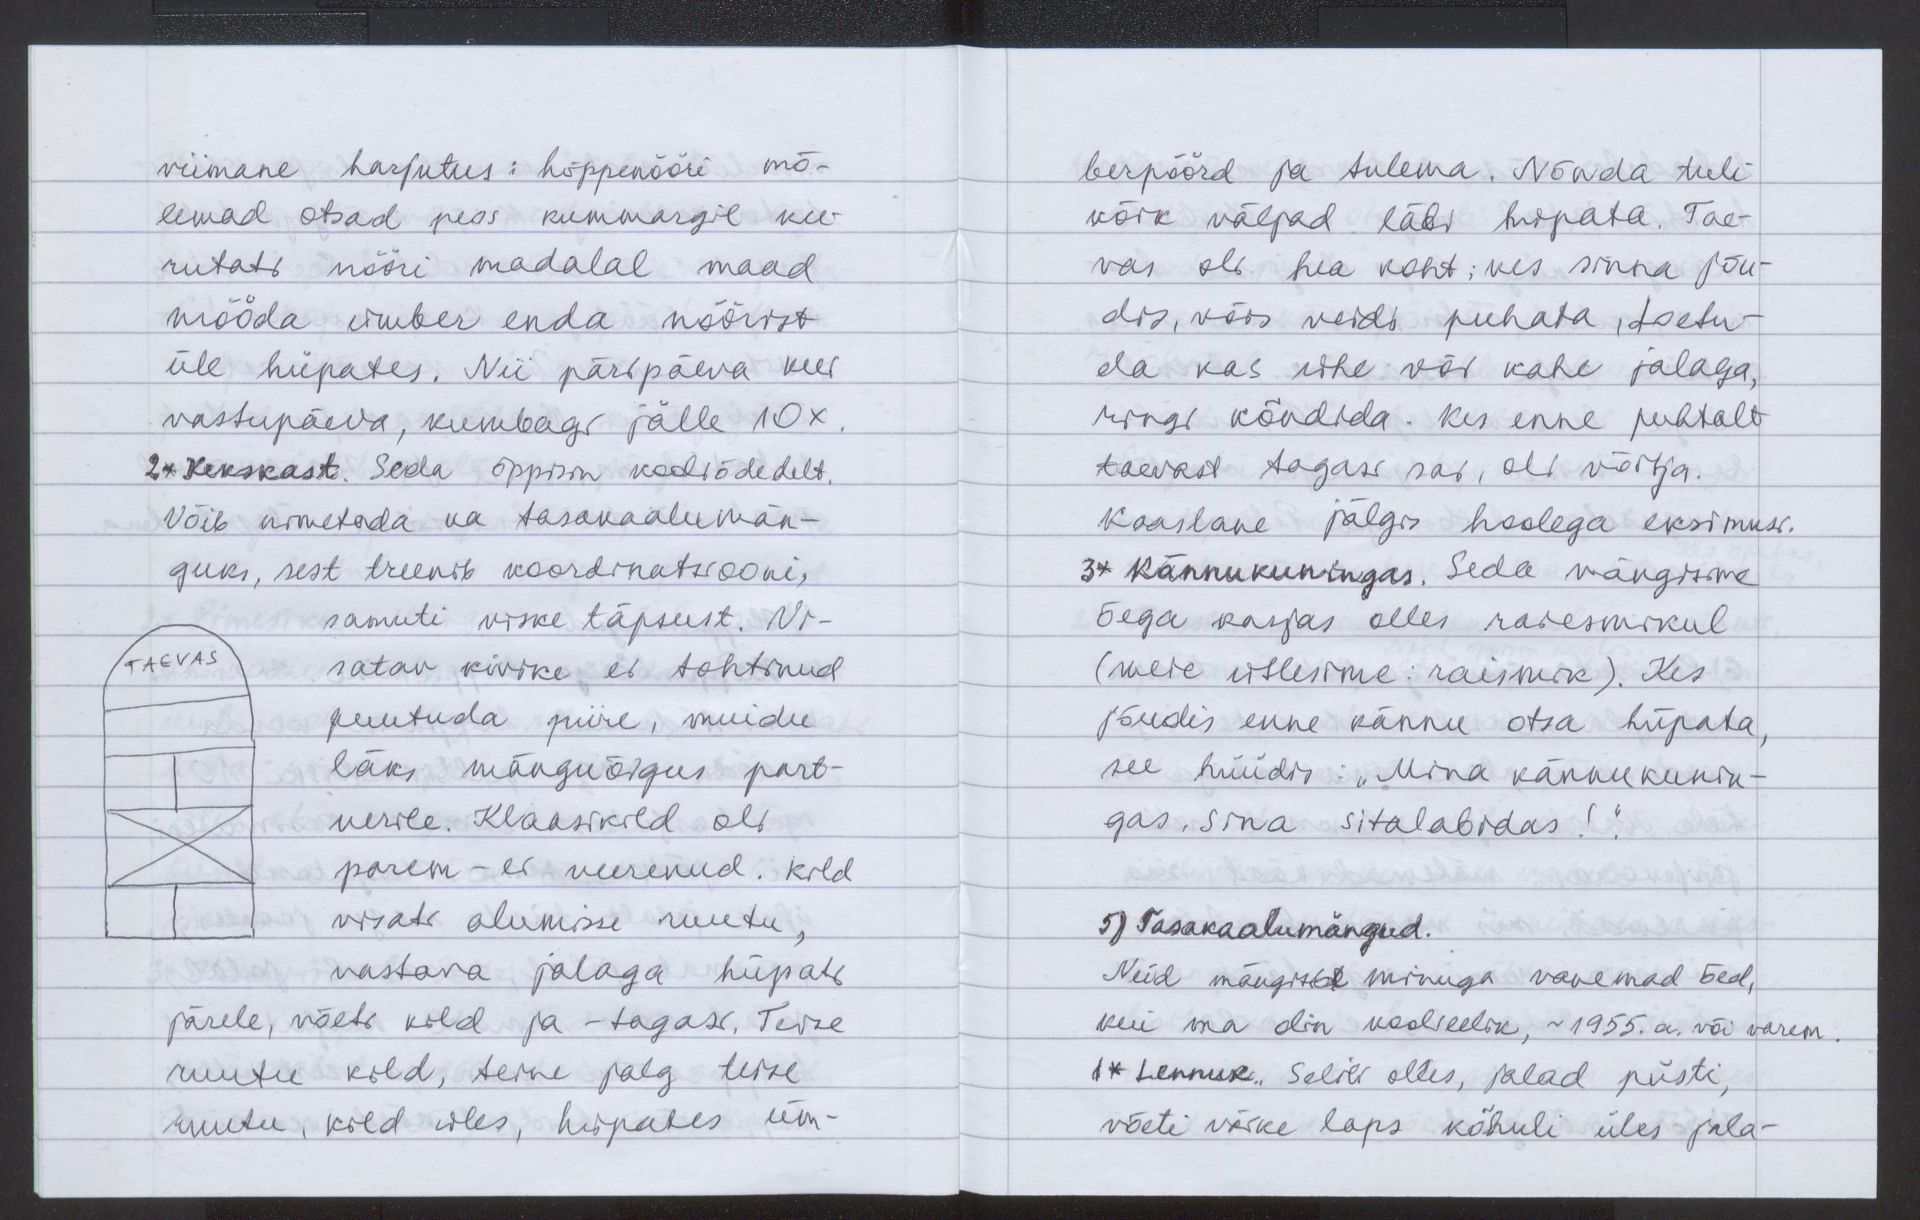 viimane harjutus: hüppenööri mõ-
lemad otsad peos kummargil kee-
rutati nööri madalal maad
mööda ümber enda nöörist
üle hüpates. Nii päripäeva kui
vastupäeva, kumbagi jälle 10x.
2* Kekskast. Seda õppisin kooliõdedelt.
Võib nimetada ka tasakaalumän-
guks, sest treenib koordinatsiooni,
samuti viske täpsust. Vi-
satav kivike ei tohtinud
puutuda piire, muidu
läks mänguõigus part-
nerile. Klaasikild oli
parem - ei veerenud. Kild
visati alumisse ruutu,
vastava jalaga hüpati
järele, võeti kild ja - tagasi. Teise
ruutu kild, teine jalg teise
ruutu, kild üles, hüpates üm-
TAEVAS
berpöörd ja tulema. Nõnda tuli
kõik väljad läbi hüpata. Tae-
vas oli hea koht; kes sinna jõu-
dis, võis veidi puhata, toetu-
da kas ühe või kahe jalaga,
ringi kõndida. Kes enne puhtalt
taevast tagasi sai, oli võitja.
Kaaslane jälgis hoolega eksimusi.
3* Kännukuningas. Seda mängisime
õega karjas olles raiesmikul
(meie ütlesime: raismik). Kes
jõudis enne kännu otsa hüpata,
see hüüdis: „Mina kännukunin-
gas, sina sitalabidas!"
5) Tasakaalumängud.
Neid mängisid minuga vanemad õed,
kui ma olin koolieelik, ~1955. a. või varem.
1* Lennuk. Selili olles, jalad püsti,
võeti väike laps kõhuli üles jala-